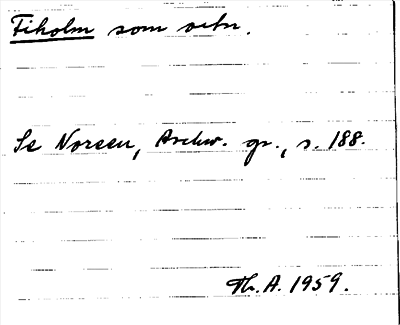 Fiholm som ortn.
Se Noreen, Aschw. gr., s. 188.
Th. A. 1959.